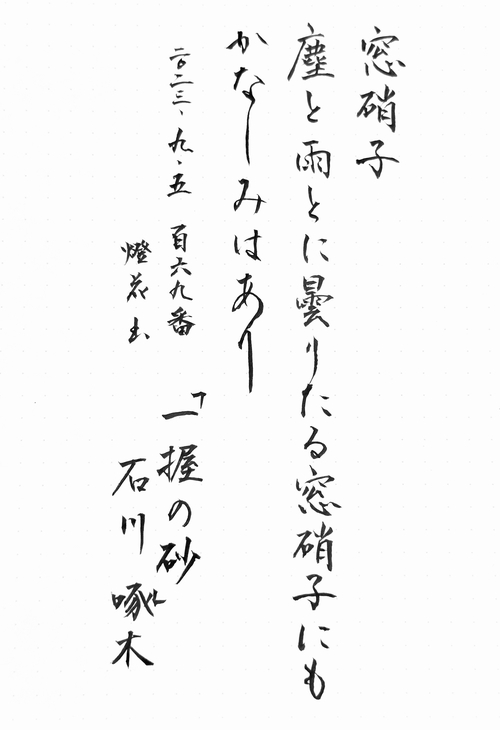 窓硝子
塵と雨とに曇りたる窓硝子にも
かなしみはあり
二〇二三、九、五 百六九番
燈花
「一握の砂」
石川啄木